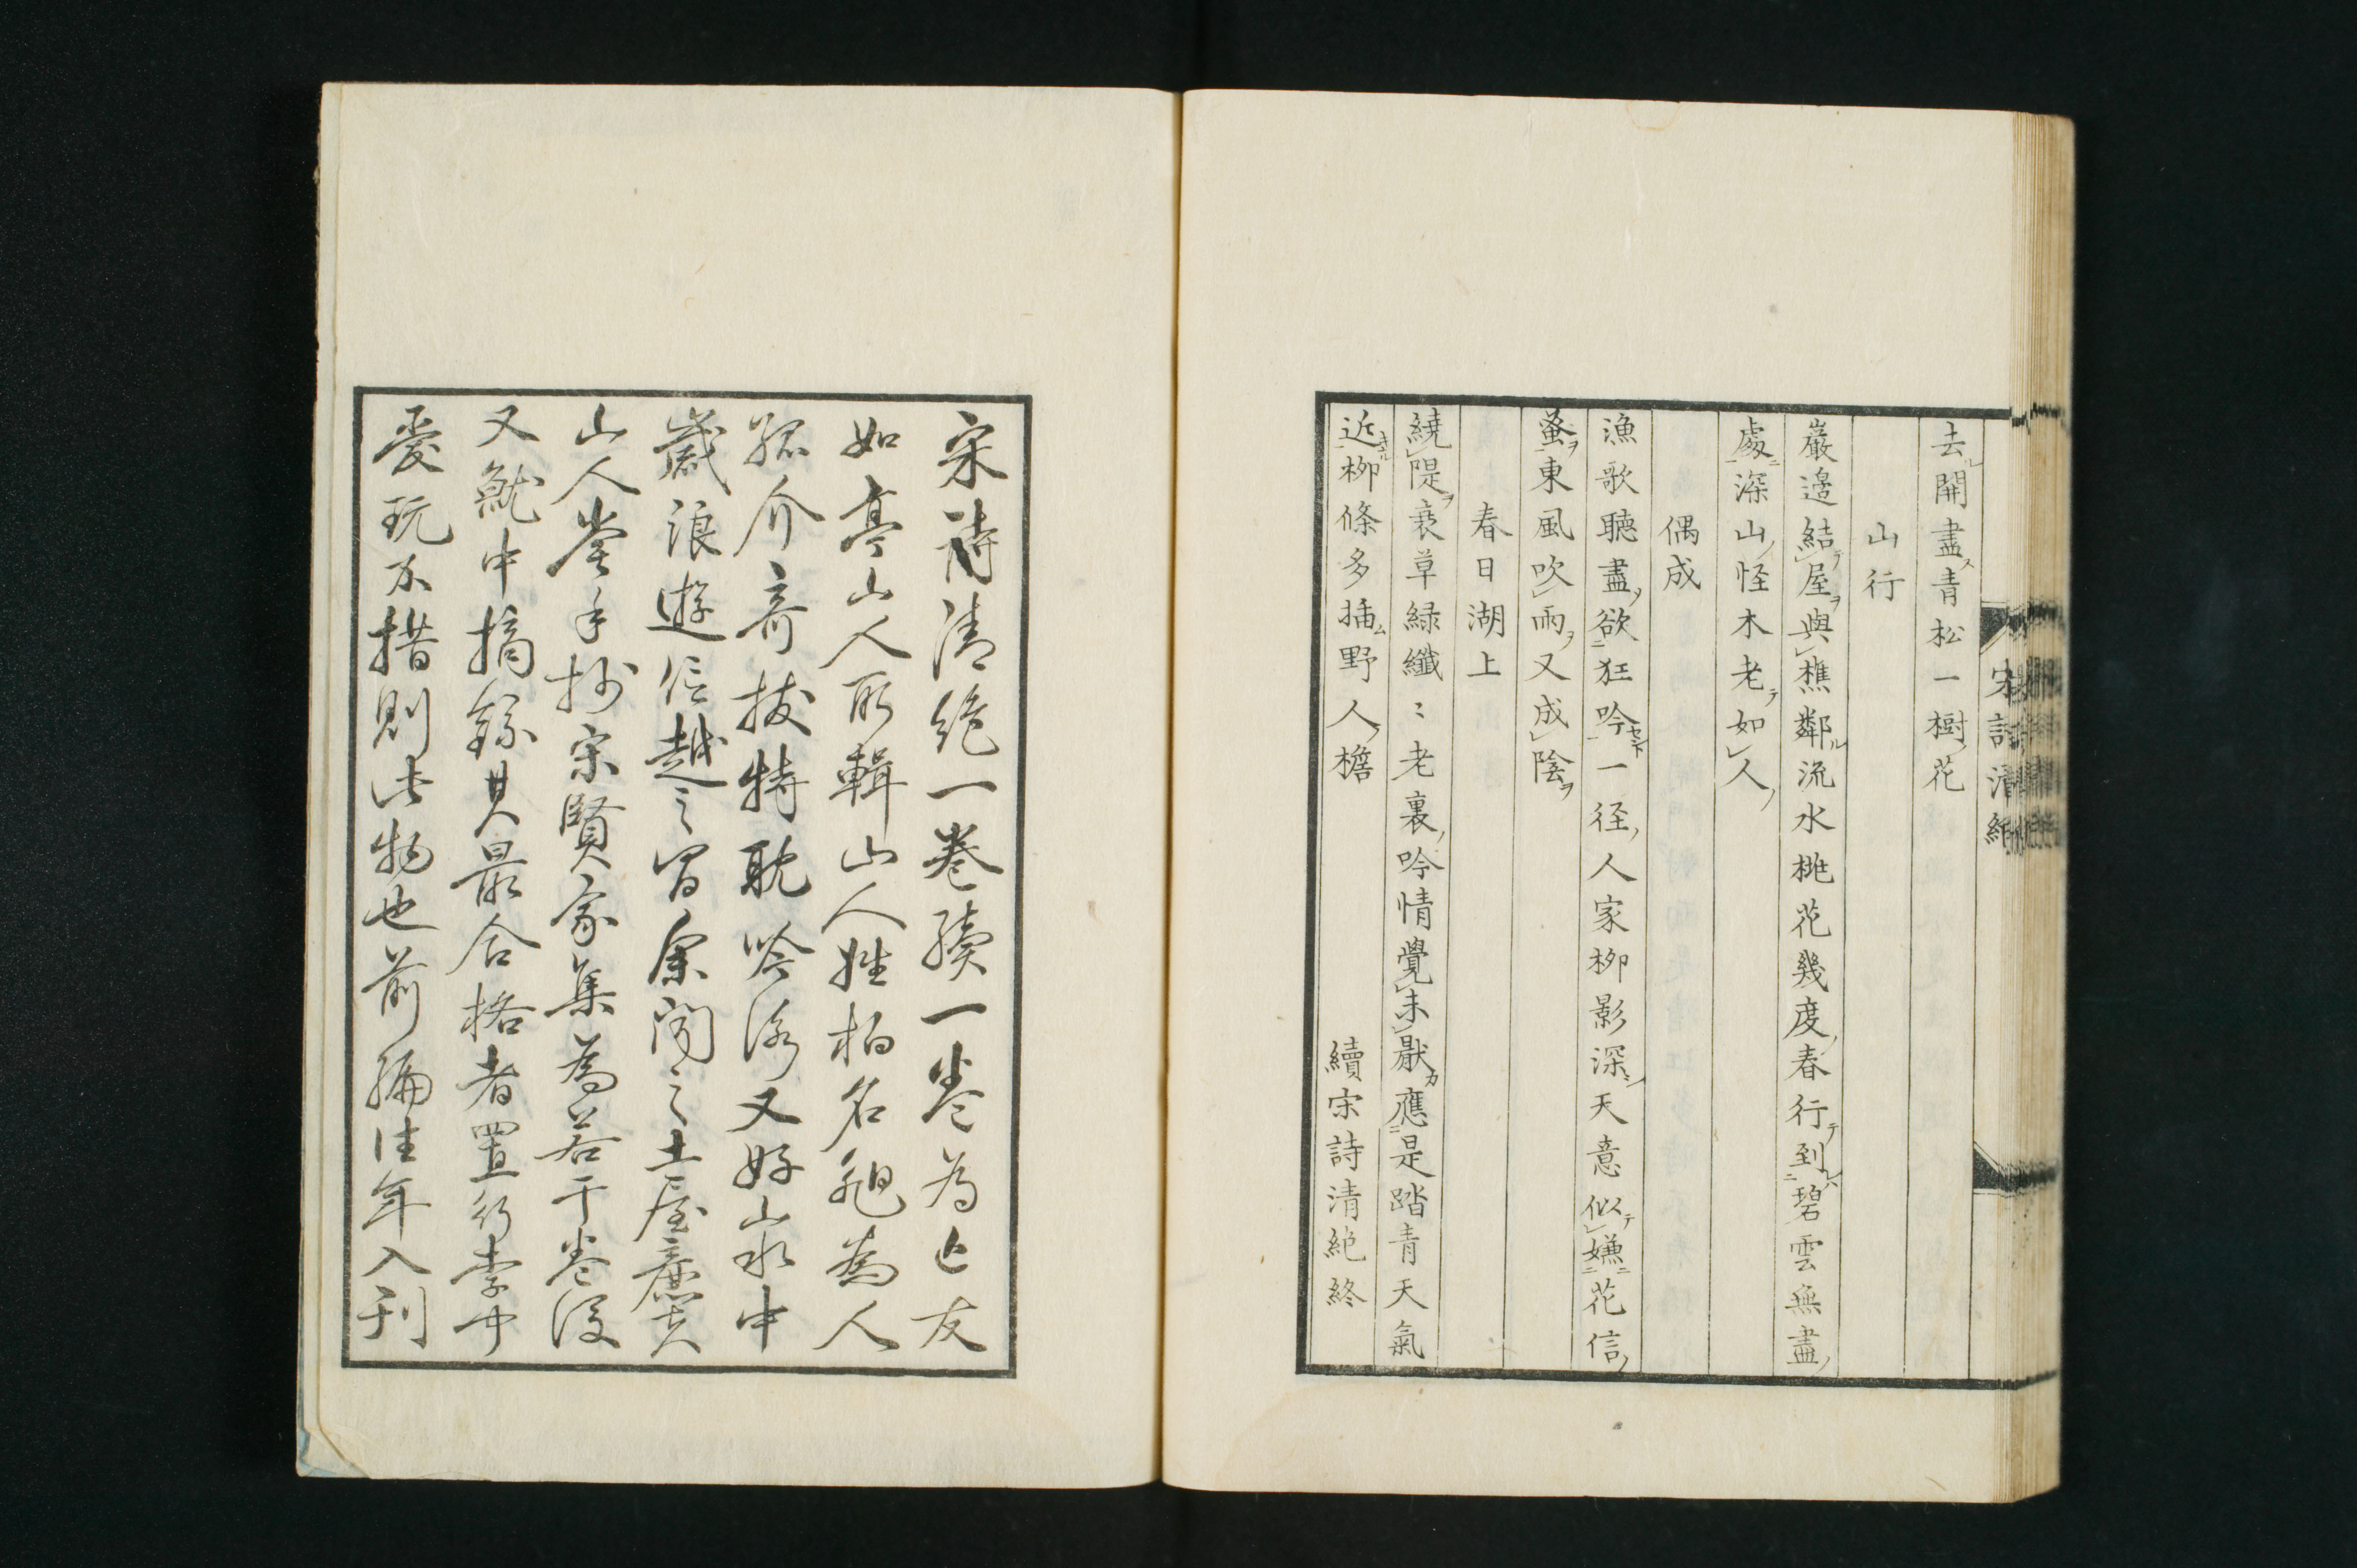 去開盡青松一樹花
山行
巖邊結屋與樵鄰流水桃花幾度春行到碧雲無盡
處深山怪木老如人
偶成
漁歌聽盡欲狂吟一径人家柳影深天意似嫌花信
蚤東風吹雨又成陰
春日湖上
繞隄衰草緑纖〻老裏吟情覺未厭應是踏青天氣
近柳條多插野人檐
續宋詩清絶終
宋詩清絶
宋詩清絶一卷續一卷為亡友
如亭山人所輯山人姓柏名昶為人
孤介奇拔特耽吟詠又好山水中
歳浪遊信越之間余聞之土屋廉夫
山人嘗手抄宋賢家集為若干卷後
又就中摘録其最合格者置行李中
愛玩不措則此物也前編往年入刊